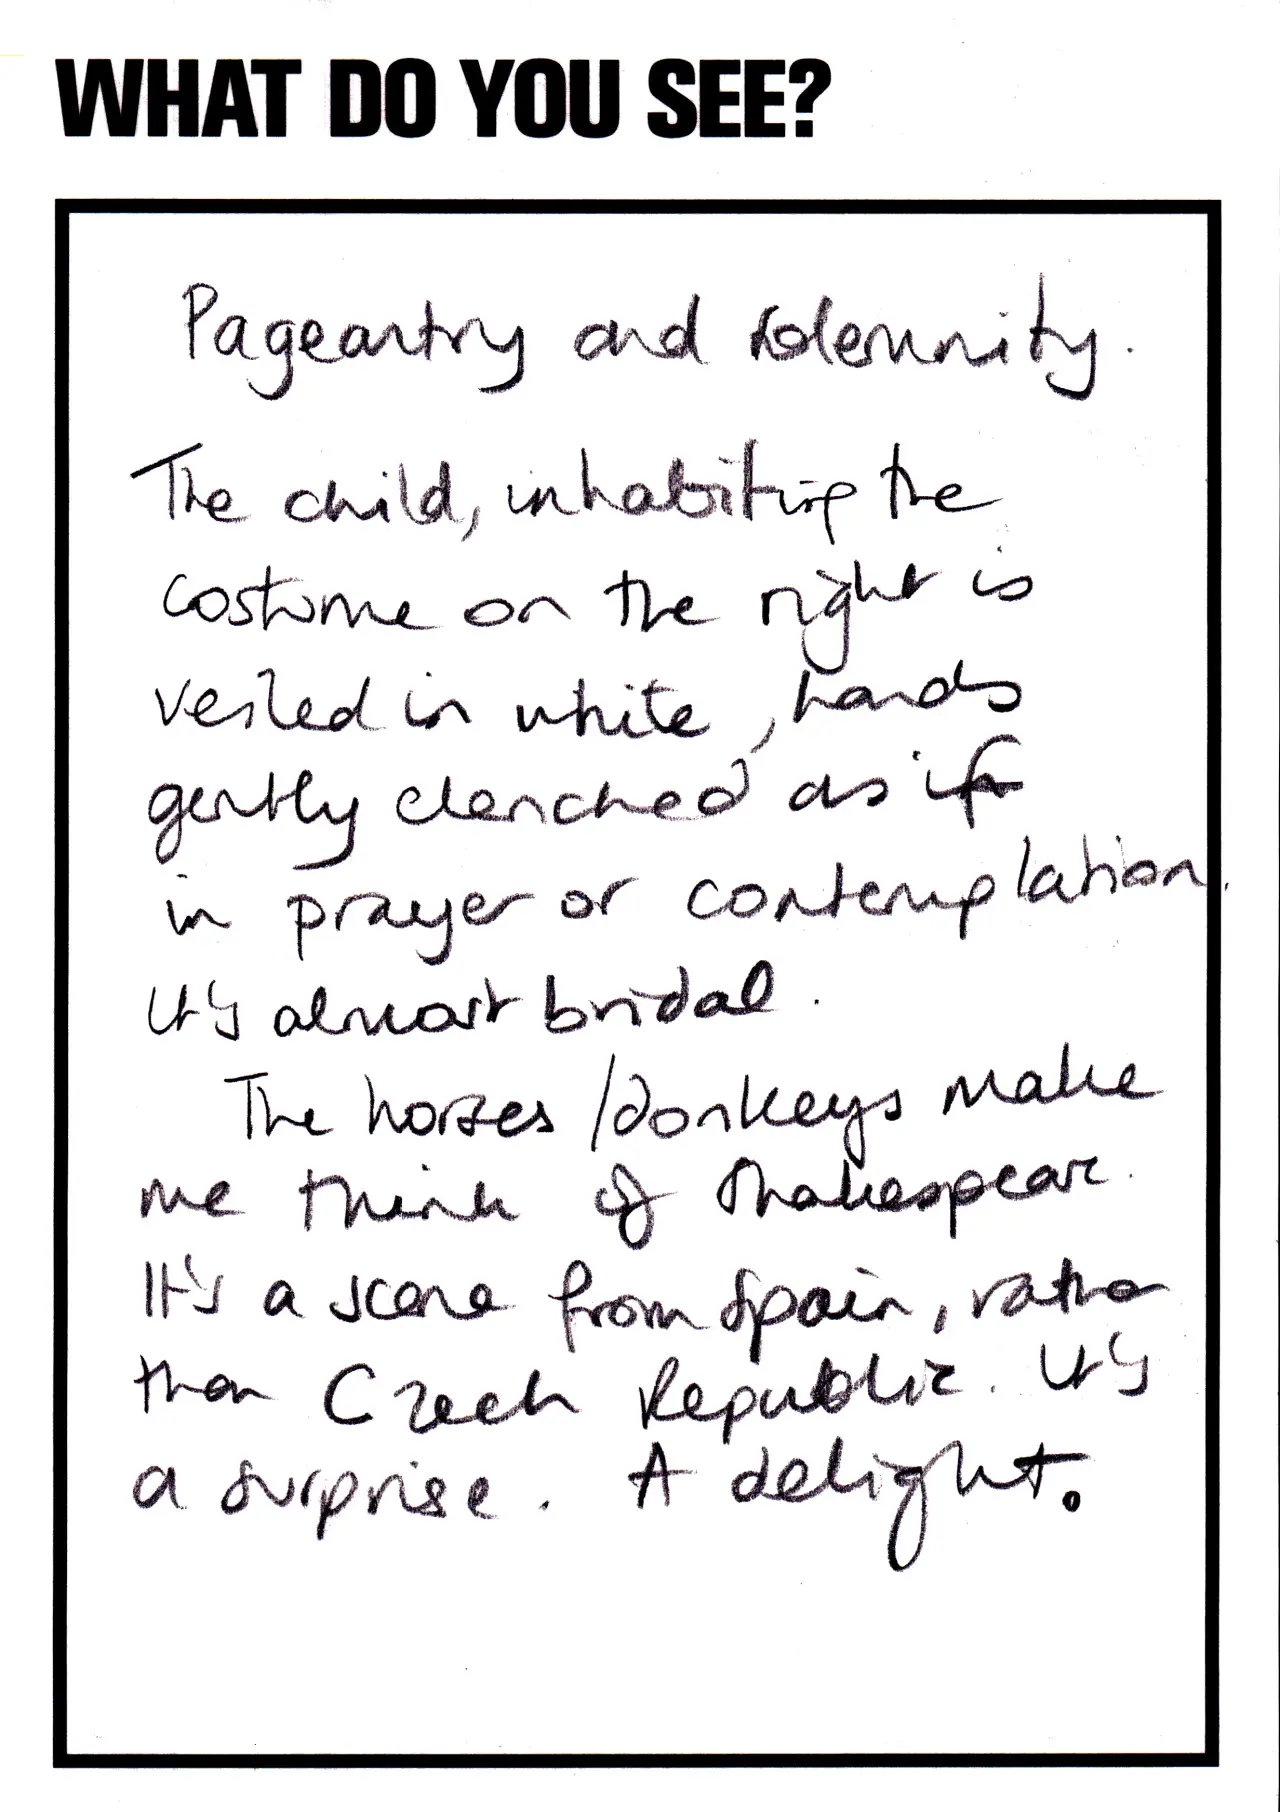 WHAT DO YOU SEE?
Pageantry and solemnity.
The child, inhabiting the
costume on the right is
veiled in white, hands
gently clenched as if
in prayer or contemplation.
It's almost bridal.
The horses/donkeys make
me think of Shakespeare.
It's a scene from Spain, rather
than Czech Republic. It's
a surprise. A delight.